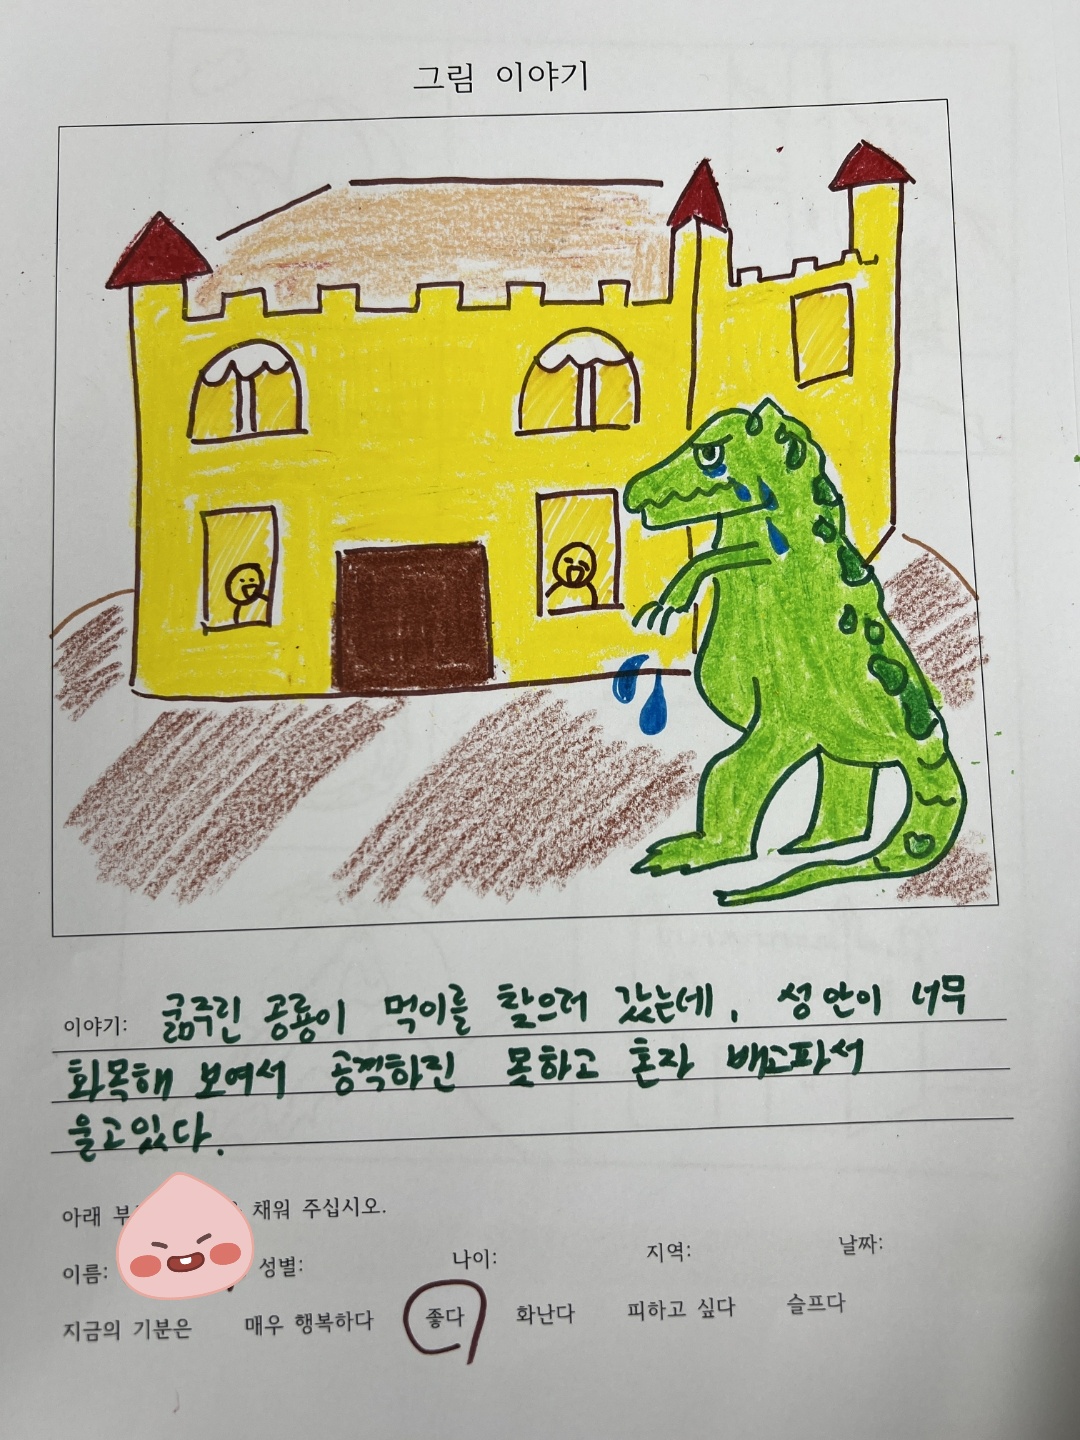 그림 이야기
이야기: 굶주린 공룡이 먹이를 찾으러 갔는데, 성 안이 너무
화목해 보여서 공격하진 못하고 혼자 배고파서
울고있다.
아래 채워 주십시오.
이름: 성별: 나이: 지역: 날짜:
지금의 기분은 매우 행복하다 좋다 화난다 피하고 싶다 슬프다